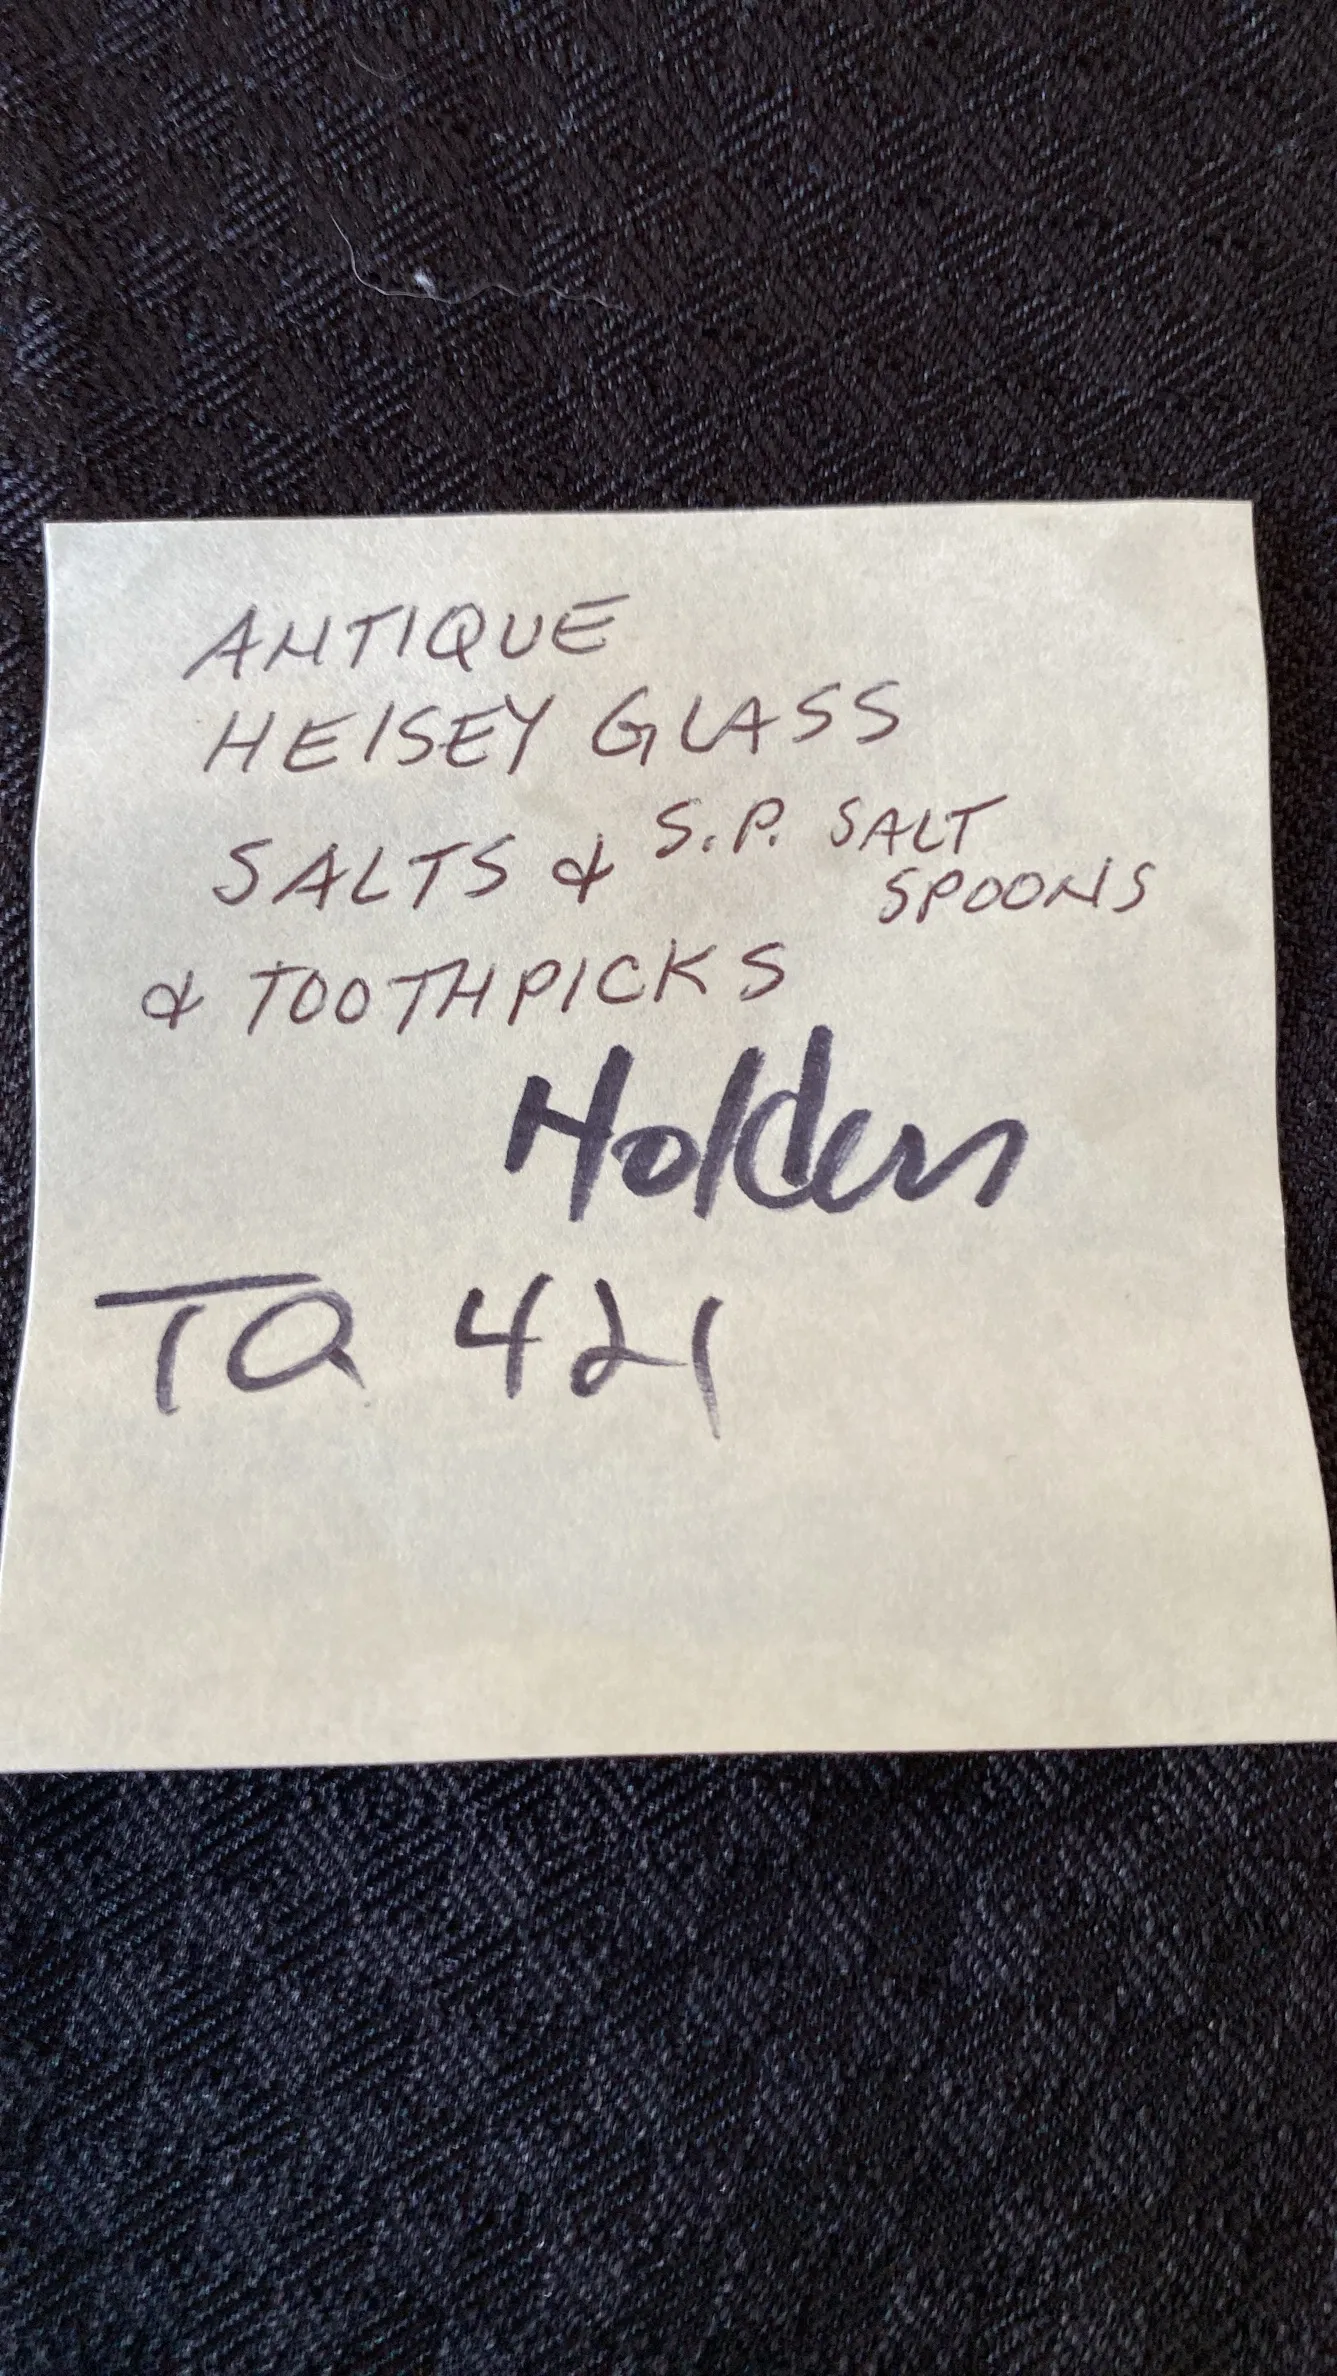 ANTIQUE
HEISEY GLASS
SALTS & S.P. SALT
SPOONS
& TOOTHPICKS
Holders
TQ 421